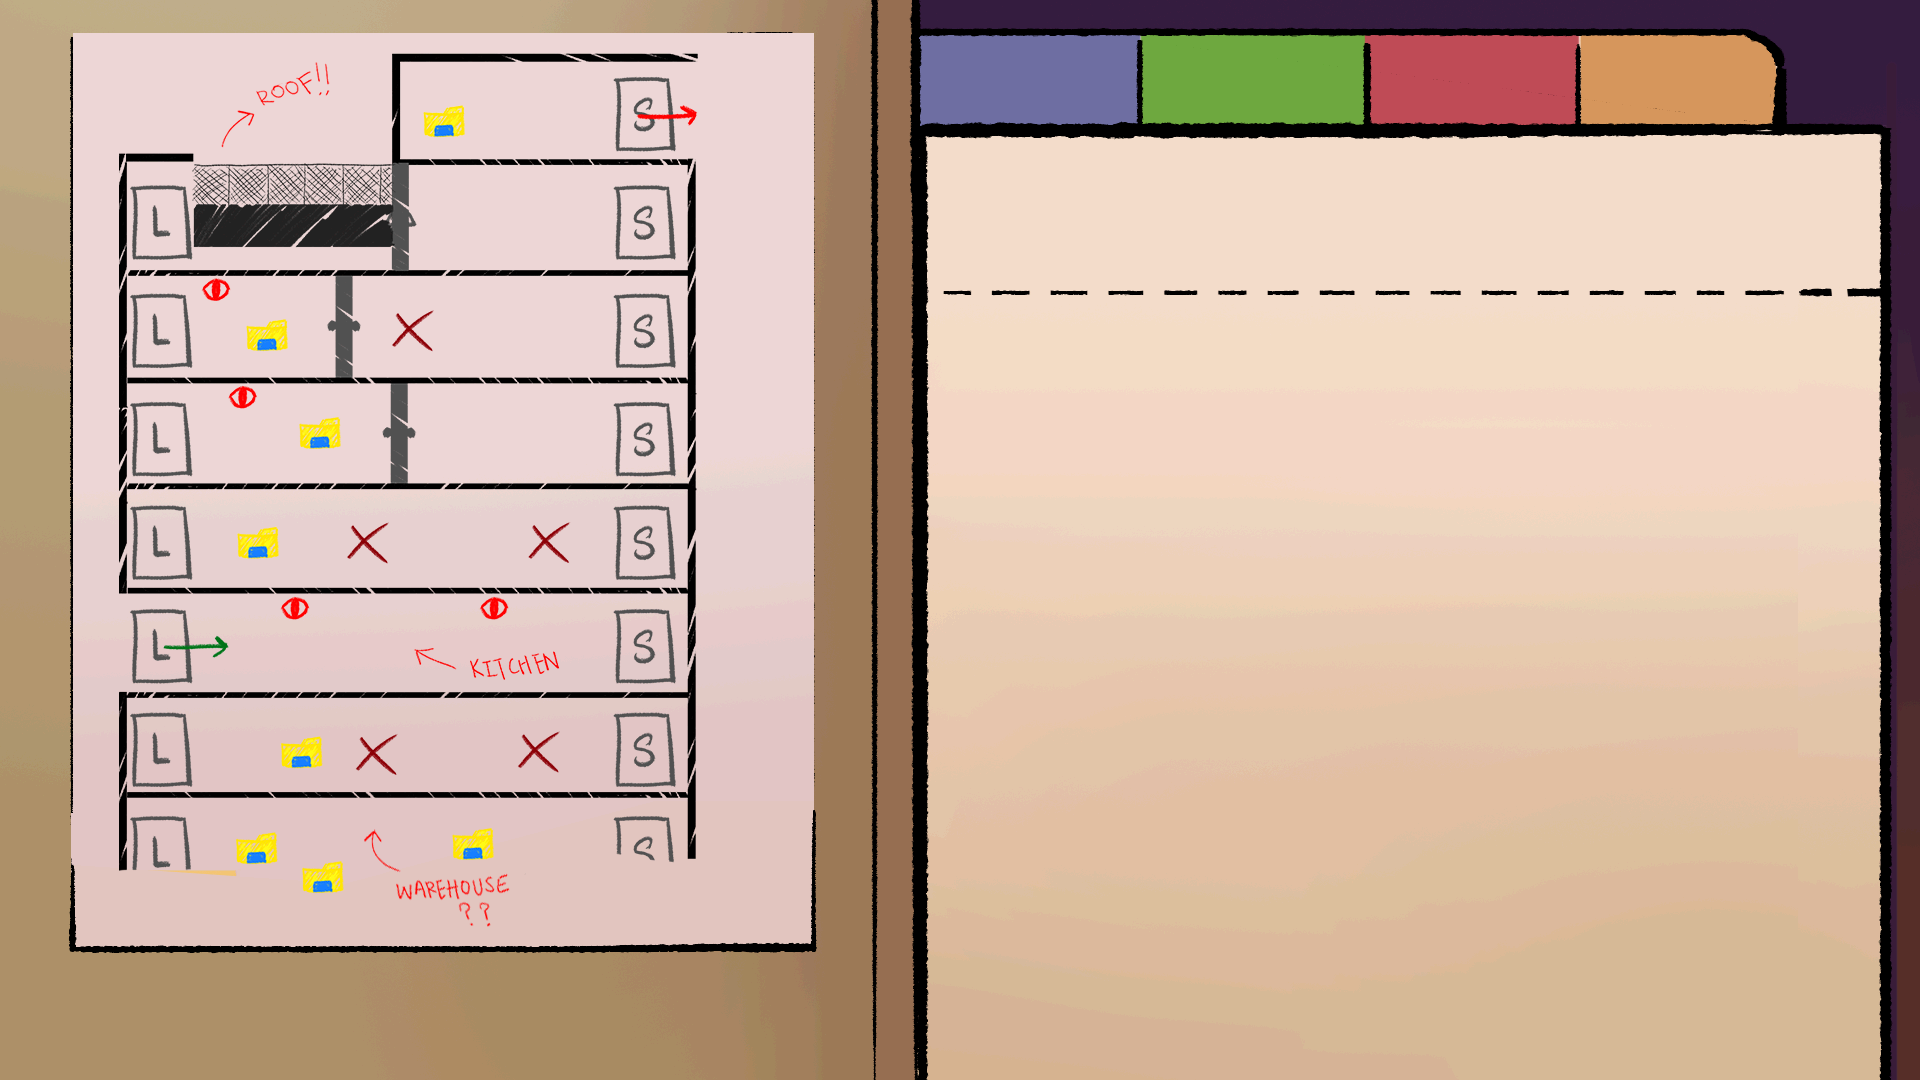 ROOF!!
S
L
S
L
S
L
S
L
S
L
S
KITCHEN
L
S
L
S
WAREHOUSE
??